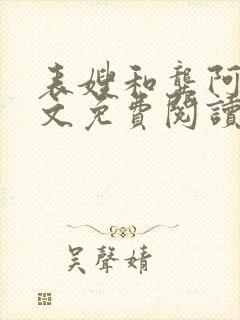 表嫂和龔阿
文免費閱讀
吴聲婧